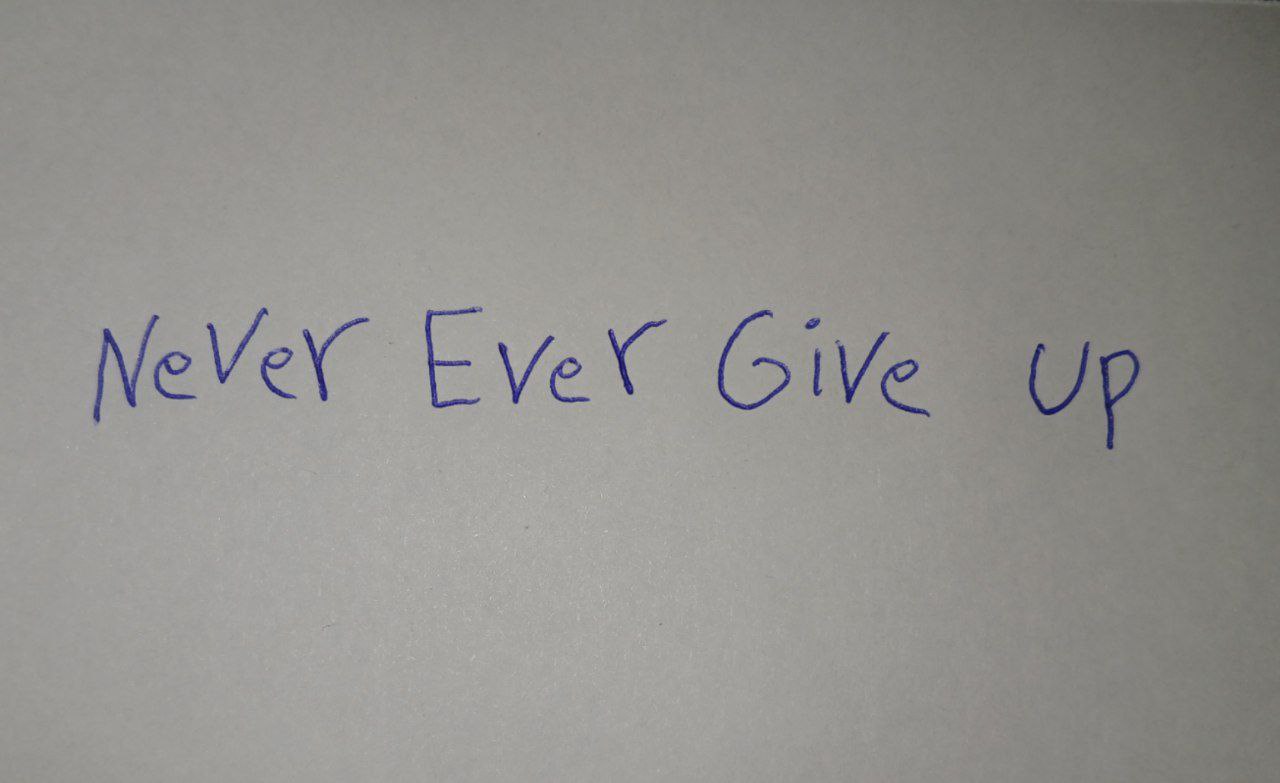 Never Ever Give up